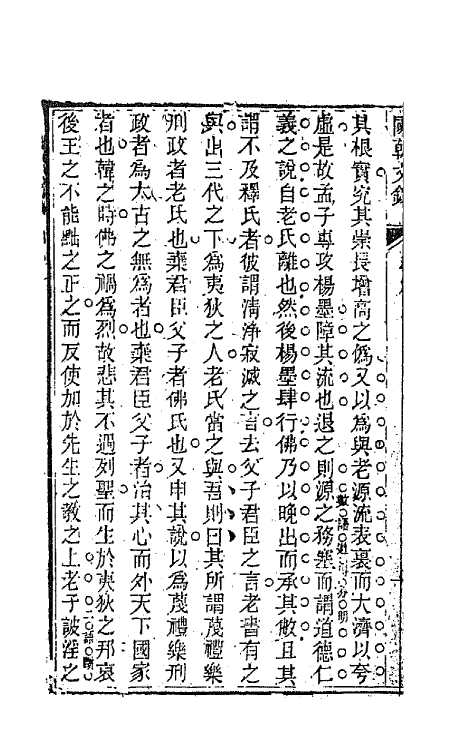 國朝文錄
其根實究其崇長增高之僞又以爲與老源流表裏而大濟以夸
虛是故孟子專攻楊墨障其流也退之則源之務塞而謂道德仁
義之說自老氏離也然後楊墨肆行佛乃以晚出而承其敝且其
謂不及釋氏者彼謂淸淨寂滅之言去父子君臣之言老書有之
與出三代之下爲夷狄之人老氏當之與吾則曰其所謂蔑禮樂
刑政者老氏也棄君臣父子者佛氏也又申其說以爲蔑禮樂刑
政者爲太古之無爲者也棄君臣父子者治其心而外天下國家
者也韓之時佛之禍爲烈故悲其不遇列聖而生於夷狄之邦哀
後王之不能黜之正之而反使加於先生之敎之上老子詖淫之